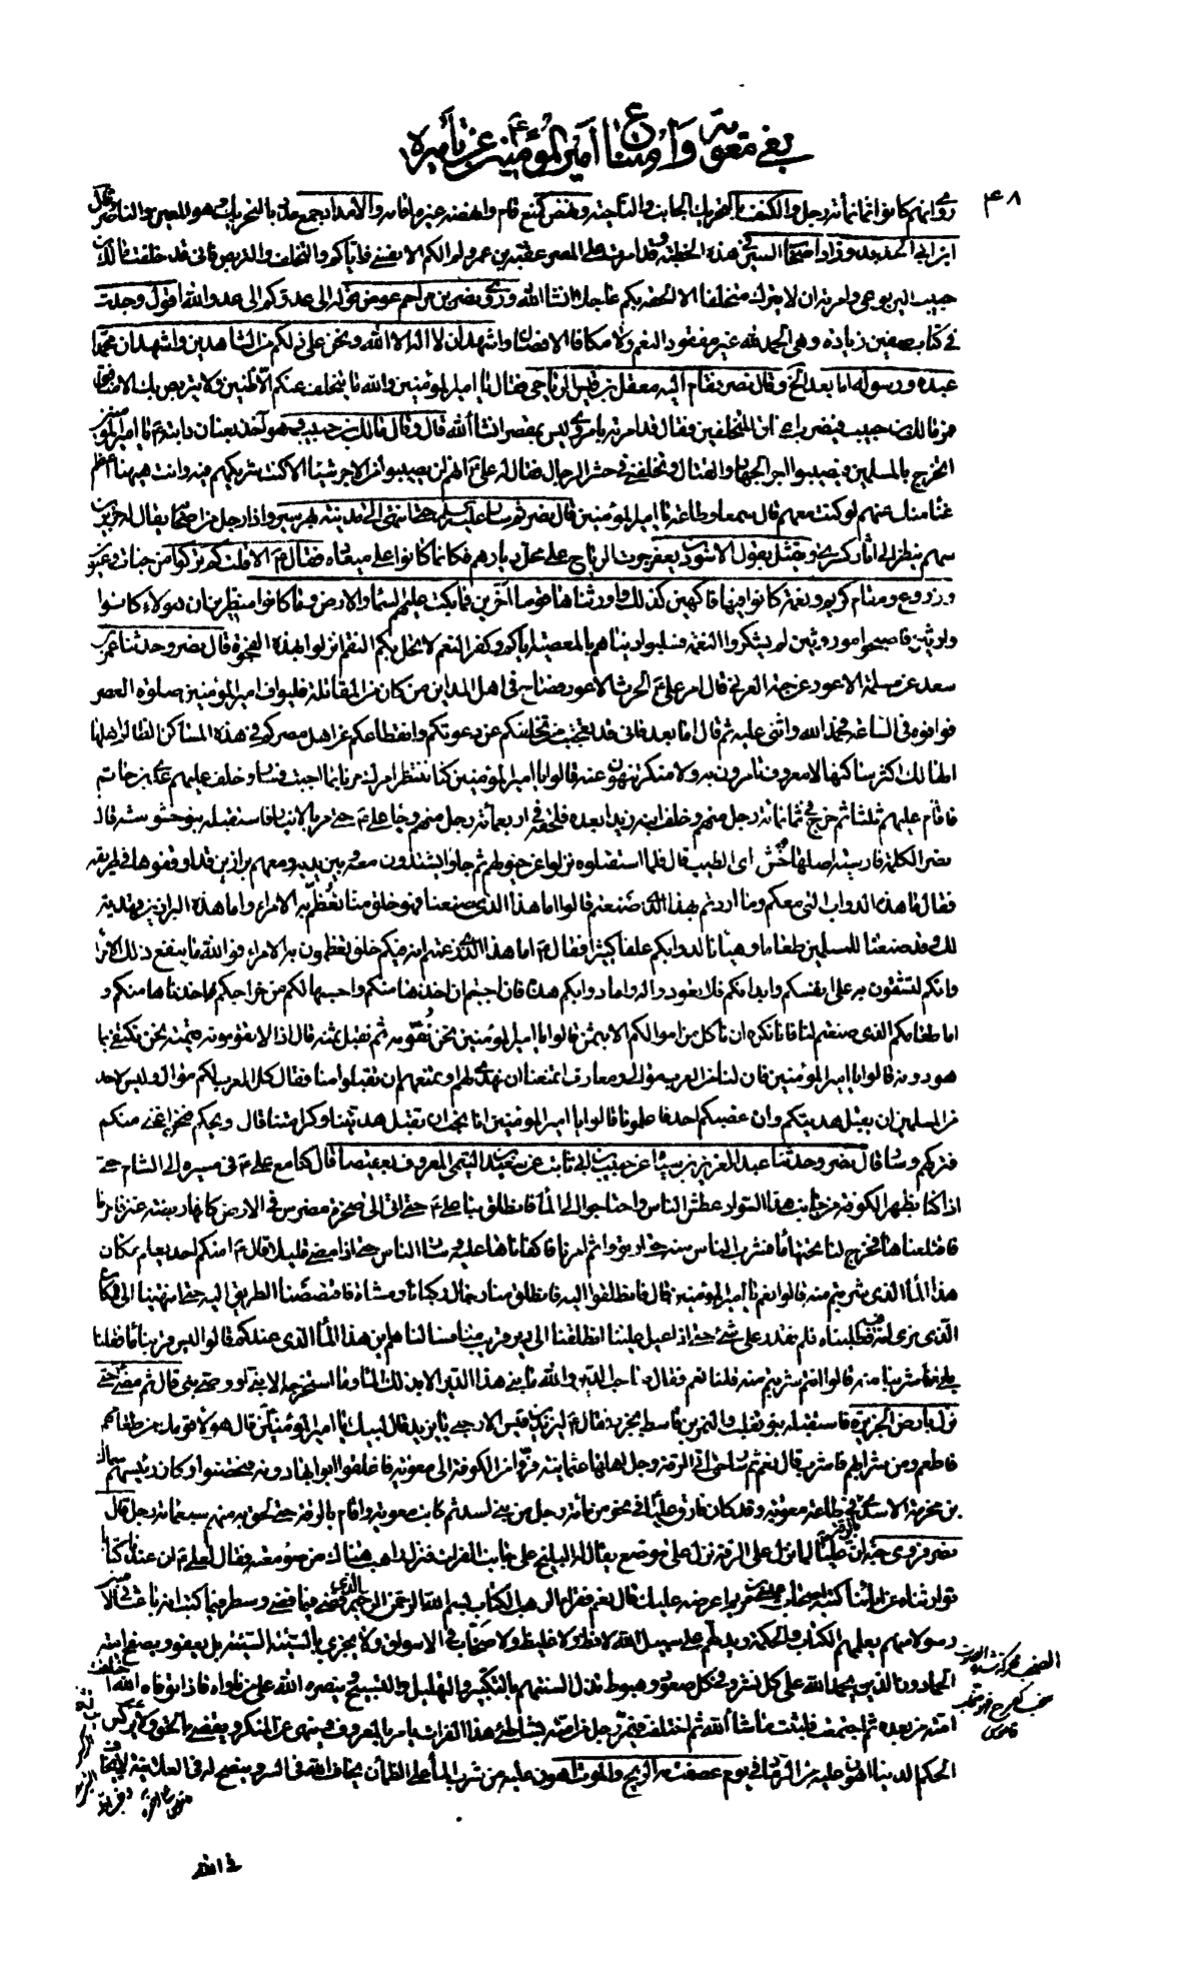 بغى معوية وامتناع امير المؤمنين عن تأميره
۴۸
روى انهم كانوا ثمانمائة رجل والكنف بالتحريك الجانب والناحية ونهض كمنع قام وانهضه غيره اقامه والامداد جمع مدد بالتحريك وهو المعين والناصر وقال
ابن ابى الحديد وزاد اصحاب السير فى هذه الخطبة وقد امرت على المصر عقبة بن عمرو ولم الكم الا نفسى فاياكم والتخلف والتربص فانى قد خلفت مالك بن
حبيب اليربوعى وامرته ان لا يترك متخلفا الا الحقه بكم عاجلا انشاء الله وروى نصر بن مزاحم عوض قوله الى عدوكم الى عدو الله اقول وجدت
فى كتاب صفين زيادة وهى الحمد لله غير مفقود النعم ولا مكافا الافضال واشهد ان لا اله الا الله ونحن على ذلكم من الشاهدين واشهد ان محمدا
عبده ورسوله اما بعد الخ وقال نصر فقام اليه معقل بن قيس الرياحى فقال يا امير المؤمنين والله ما يتخلف عنك الا ظنين ولا يتربص بك الا منافق
فمر مالك بن حبيب فيضرب اعناق المتخلفين فقال قد امرته بامرى وليس بمقصر انشاء الله قال وقال مالك بن حبيب وهو آخذ بعنان دابته ع يا امير المؤمنين
اتخرج بالمسلمين فيصيبوا اجر الجهاد والقتال وتخلفنى فى حشر الرجال فقال له على ع انهم لن يصيبوا من الاجر شيئا الا كنت شريكهم فيه وانت هيهنا اعظم
غناء منك عنهم لو كنت معهم قال سمعا وطاعة يا امير المؤمنين قال نصر ثم سار عليه السلم حتى انتهى الى مدينة بهرسير واذا رجل من اصحابه يقال له حر بن
سهم ينظر الى اثار كسرى ويتمثل بقول الاسود بن يعفر جرت الرياح على محل ديارهم فكانما كانوا على ميعاد فقال ع الا قلت كم تركوا من جنات وعيون
وزروع ومقام كريم ونعمة كانوا فيها فاكهين كذلك واورثناها قوما آخرين فما بكت عليهم السماء والارض وما كانوا منظرين ان هؤلاء كانوا
وارثين فاصبحوا موروثين لم يشكروا النعمة فسلبوا دنياهم بالمعصية اياكم وكفر النعم لا تحل بكم النقم انزلوا بهذه الفجوة قال نصر وحدثنا عمر بن
سعد عن مسلمة الاعور عن حبة العرنى قال امر على ع الحرث الاعور فصاح فى اهل المداين من كان من المقاتلة فليواف امير المؤمنين صلوة العصر
فوافوه فى الساعة فحمد الله واثنى عليه ثم قال اما بعد فانى قد تعجبت من تخلفكم عن دعوتكم وانقطاعكم عن اهل مصركم فى هذه المساكن الظالم اهلها
الهالك اكثر سكانها لا معروف تامرون به ولا منكر تنهون عنه قالوا يا امير المؤمنين كنا ننتظر امرك مرنا بما احببت فسار وخلف عليهم عدى بن حاتم
فاقام عليهم ثلثا ثم خرج فى ثمانمائة رجل منهم وخلف ابنه زيدا بعده فلحقه فى اربعمائة رجل منهم وجاء على ع حتى مر بالانبار فاستقبله بنو خشنوشك قال
نصر الكلمة فارسية اصلها خش اى الطيب قال فلما استقبلوه نزلوا عن خيولهم ثم جاؤا يشتدون معه وبين يديه ومعهم براذين قد اوقفوها فى طريقه
فقال ما هذه الدواب التى معكم وما اردتم بهذا الذى صنعتم قالوا اما هذا الذى صنعنا فهو خلق منا نعظم به الامراء واما هذه البراذين فهدية
لك وقد صنعنا للمسلمين طعاما وهيانا لدوابكم علفا كثيرا فقال ع اما هذا الذى زعمتم انه فيكم خلق تعظمون به الامراء فوالله ما ينفع ذلك الامراء
وانكم لتشقون به على انفسكم وابدانكم فلا تعودوا له واما دوابكم هذه فان احببتم ان اخذها منكم واحسبها لكم من خراجكم اخذناها منكم و
اما طعامكم الذى صنعتم لنا فانا نكره ان ناكل من اموالكم الا بثمن قالوا يا امير المؤمنين نحن نقومه ثم نقبل ثمنه قال اذا لا تقومونه قيمته نحن نكتفى بما
هو دونه قالوا يا امير المؤمنين فان لنا من العرب موالى ومعارف اتمنعنا ان نهدى لهم وتمنعهم ان يقبلوا منا فقال كل العرب لكم موال وليس لاحد
من المسلمين ان يقبل هديتكم وان غصبكم احد فاعلمونا قالوا يا امير المؤمنين انا نحب ان تقبل هديتنا وكرامتنا قال ويحكم فنحن اغنى منكم
فتركهم وسار قال نصر وحدثنا عبد العزيز بن سياه عن حبيب بن ابى ثابت عن سعيد التيمى المعروف بعقيصا قال كنا مع على ع فى مسيره الى الشام حتى
اذا كنا بظهر الكوفة من جانب هذا السواد عطش الناس واحتاجوا الى الماء فانطلق بنا على ع حتى اتى الى صخرة ضرس فى الارض كانها ربضة عنز فامرنا
فاقتلعناها فخرج لنا تحتها ماء فشرب الناس منه حتى ارتووا ثم امرنا فاكفاناها عليه وسار الناس حتى اذا مضى قليلا قال ع امنكم احد يعلم بمكان
هذا الماء الذى شربتم منه قالوا نعم يا امير المؤمنين قال فانطلقوا اليه فانطلق منا رجال ركبانا ومشاة فاقتصصنا الطريق اليه حتى انتهينا الى المكان
الذى نرى انه فيه فطلبناه فلم نقدر على شىء حتى اذا عيل علينا انطلقنا الى دير قريب منا فسالناهم اين هذا الماء الذى عندكم قالوا ليس قربنا ماء فقلنا
بلى انا شربنا منه قالوا انتم شربتم منه قلنا نعم فقال صاحب الدير والله ما بنى هذا الدير الا بذلك الماء وما استخرجه الا نبى او وصى نبى قال ثم مضى حتى
نزل بارض الجزيرة فاستقبله بنو تغلب والنمر بن قاسط بجزيرة فقال ع ليزيد بن قيس الارحبى يا يزيد قال لبيك يا امير المؤمنين قال هؤلاء قومك من طعامهم
فاطعم ومن شرابهم فاشرب قال نعم ثم سار حتى اتى الرقة وجل اهلها عثمانية فروا من الكوفة الى معوية فاغلقوا ابوابها دونه وتحصنوا وكان رئيسهم سماك
بن مخرمة الاسدى فى طاعة معوية وقد كان فارق عليا فى نحو من مائة رجل من بنى اسد ثم كاتب معوية واقام بالرقة حتى لحق به منهم سبعمائة رجل قال
نصر فروى حبة ان عليا لما نزل على الرقة نزل على موضع يقال له البليخ على جانب الفرات فنزل راهب هناك من صومعته فقال لعلى ع ان عندنا كتابا
توارثناه عن ابائنا كتبه اصحاب عيسى بن مريم اعرضه عليك قال نعم فقرا الراهب الكتاب بسم الله الرحمن الرحيم الذى قضى فيما قضى وسطر فيما كتب انه باعث فى الاميين
رسولا منهم يعلمهم الكتاب والحكمة ويدلهم على سبيل الله لا فظ ولا غليظ ولا صخاب فى الاسواق ولا يجزى بالسيئة السيئة بل يعفو ويصفح امته
الحمادون الذين يحمدون الله على كل نشز وفى كل صعود وهبوط تذل السنتهم بالتكبير والتهليل والتسبيح وينصره الله على من ناواه فاذا توفاه الله اختلفت
امته من بعده ثم اجتمعت فلبثت ما شاء الله ثم اختلفت فيمر رجل من امته بشاطئ هذا الفرات يامر بالمعروف وينهى عن المنكر ويقضى بالحق ولا يركس
الحكم الدنيا اهون عليه من الرماد فى يوم عصفت به الريح والموت اهون عليه من شرب الماء على الظمان يخاف الله فى السر وينصح له فى العلانية لا يخاف
فى الله